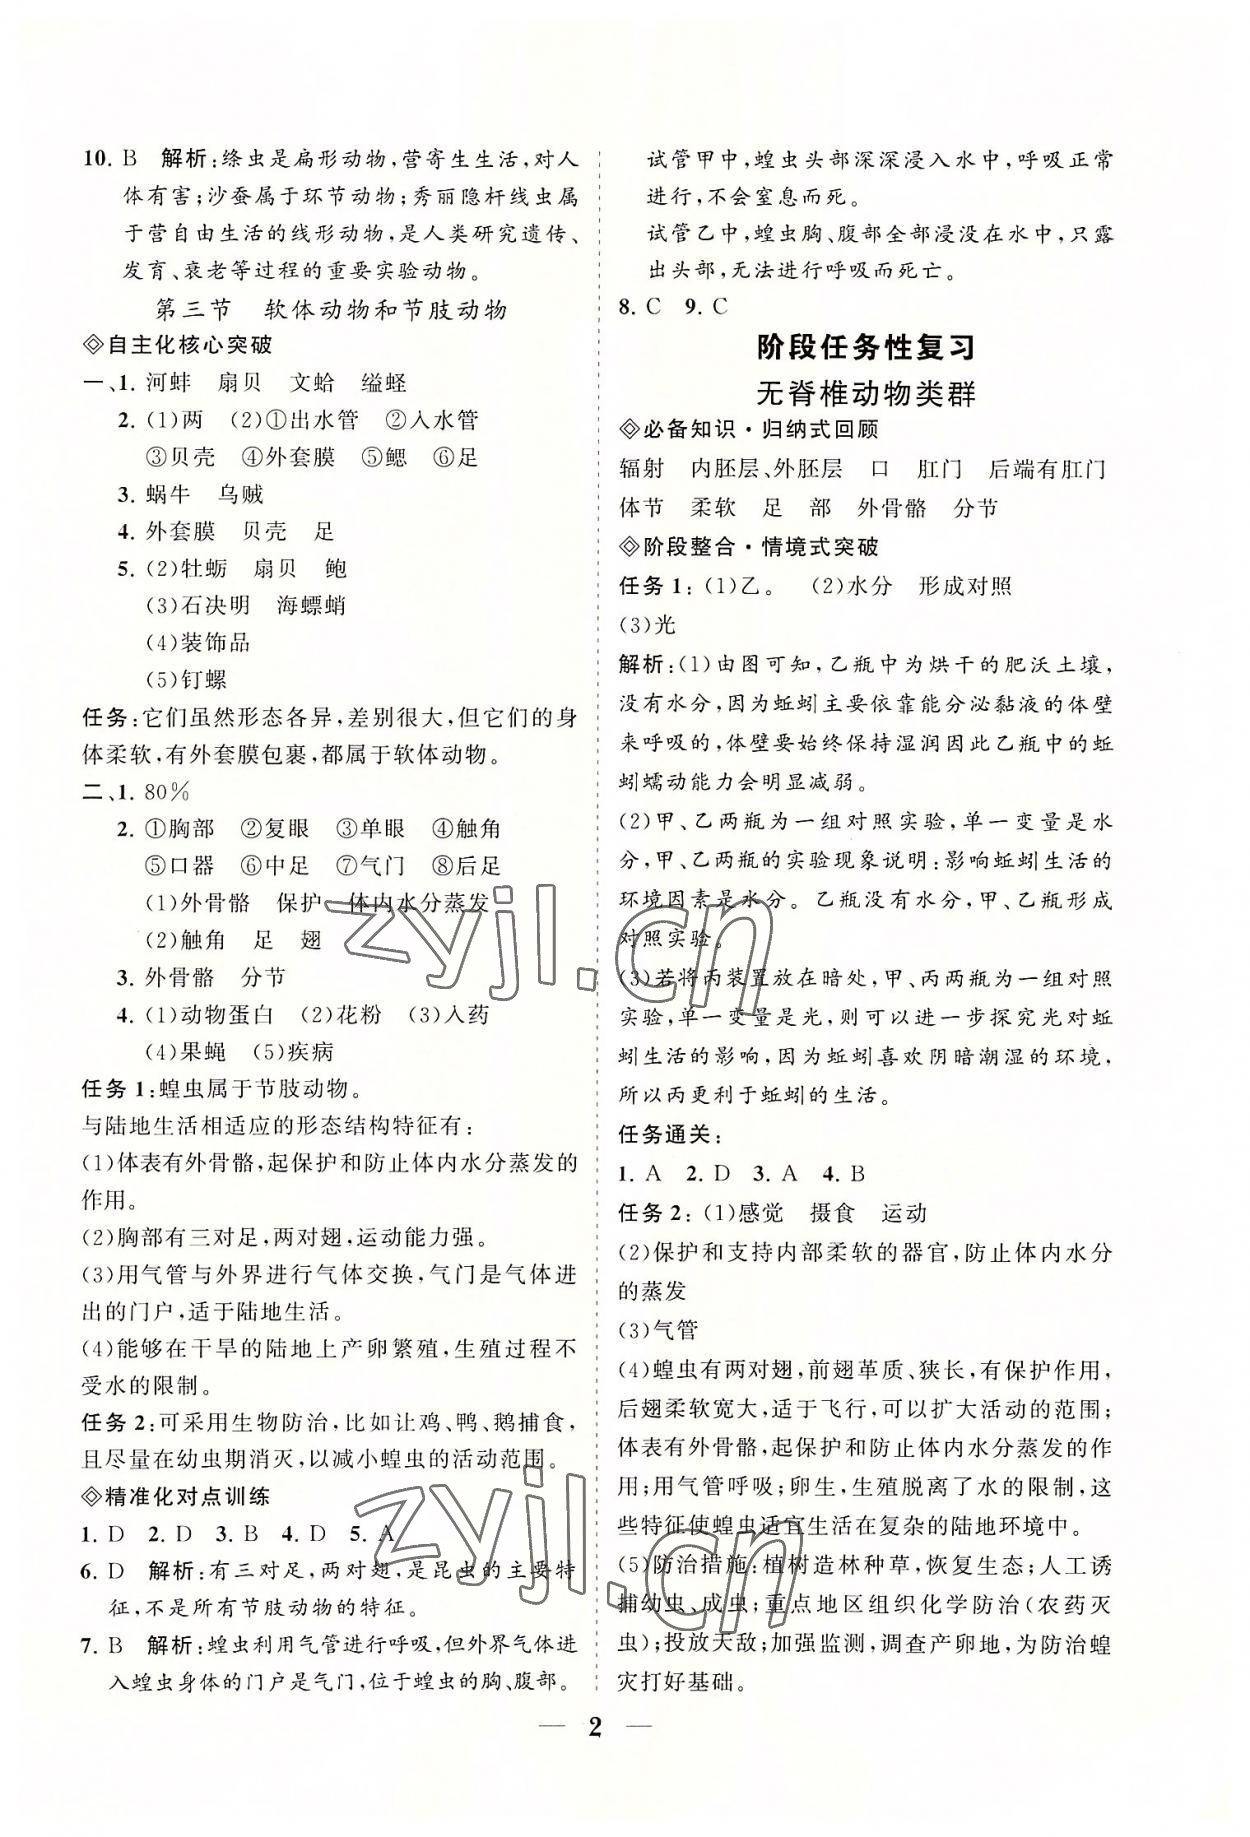 10. B　解析:绦虫是扁形动物,营寄生生活,对人
体有害;沙蚕属于环节动物;秀丽隐杆线虫属
于营自由生活的线形动物,是人类研究遗传、
发育、衰老等过程的重要实验动物。
第三节　软体动物和节肢动物
◇自主化核心突破
一、1. 河蚌　扇贝　文蛤　缢蛏
2. (1)两　(2)①出水管　②入水管
③贝壳　④外套膜　⑤鳃　⑥足
3. 蜗牛　乌贼
4. 外套膜　贝壳　足
5. (2)牡蛎　扇贝　鲍
(3)石决明　海螵蛸
(4)装饰品
(5)钉螺
任务:它们虽然形态各异,差别很大,但它们的身
体柔软,有外套膜包裹,都属于软体动物。
二、1. 80%
2. ①胸部　②复眼　③单眼　④触角
⑤口器　⑥中足　⑦气门　⑧后足
(1)外骨骼　保护　体内水分蒸发
(2)触角　足　翅
3. 外骨骼　分节
4. (1)动物蛋白　(2)花粉　(3)入药
(4)果蝇　(5)疾病
任务1:蝗虫属于节肢动物。
与陆地生活相适应的形态结构特征有:
(1)体表有外骨骼,起保护和防止体内水分蒸发的
作用。
(2)胸部有三对足,两对翅,运动能力强。
(3)用气管与外界进行气体交换,气门是气体进
出的门户,适于陆地生活。
(4)能够在干旱的陆地上产卵繁殖,生殖过程不
受水的限制。
任务2:可采用生物防治,比如让鸡、鸭、鹅捕食,
且尽量在幼虫期消灭,以减小蝗虫的活动范围。
◇精准化对点训练
1. D　2. D　3. B　4. D　5. A
6. D　解析:有三对足,两对翅,是昆虫的主要特
征,不是所有节肢动物的特征。
7. B　解析:蝗虫利用气管进行呼吸,但外界气体进
入蝗虫身体的门户是气门,位于蝗虫的胸、腹部。
试管甲中,蝗虫头部深深浸入水中,呼吸正常
进行,不会窒息而死。
试管乙中,蝗虫胸、腹部全部浸没在水中,只露
出头部,无法进行呼吸而死亡。
8. C　9. C
阶段任务性复习
无脊椎动物类群
◇必备知识·归纳式回顾
辐射　内胚层、外胚层　口　肛门　后端有肛门
体节　柔软　足　部　外骨骼　分节
◇阶段整合·情境式突破
任务1:(1)乙。　(2)水分　形成对照
(3)光
解析:(1)由图可知,乙瓶中为烘干的肥沃土壤,
没有水分,因为蚯蚓主要依靠能分泌黏液的体壁
来呼吸的,体壁要始终保持湿润因此乙瓶中的蚯
蚓蠕动能力会明显减弱。
(2)甲、乙两瓶为一组对照实验,单一变量是水
分,甲、乙两瓶的实验现象说明:影响蚯蚓生活的
环境因素是水分。乙瓶没有水分,甲、乙瓶形成
对照实验。
(3)若将丙装置放在暗处,甲、丙两瓶为一组对照
实验,单一变量是光,则可以进一步探究光对蚯
蚓生活的影响,因为蚯蚓喜欢阴暗潮湿的环境,
所以丙更利于蚯蚓的生活。
任务通关:
1. A　2. D　3. A　4. B
任务2:(1)感觉　摄食　运动
(2)保护和支持内部柔软的器官,防止体内水分
的蒸发
(3)气管
(4)蝗虫有两对翅,前翅革质、狭长,有保护作用,
后翅柔软宽大,适于飞行,可以扩大活动的范围;
体表有外骨骼,起保护和防止体内水分蒸发的作
用;用气管呼吸;卵生,生殖脱离了水的限制,这
些特征使蝗虫适宜生活在复杂的陆地环境中。
(5)防治措施:植树造林种草,恢复生态;人工诱
捕幼虫、成虫;重点地区组织化学防治(农药灭
虫);投放天敌;加强监测,调查产卵地,为防治蝗
灾打好基础。
— 2 —
zyjl.cn
zyjl.cn